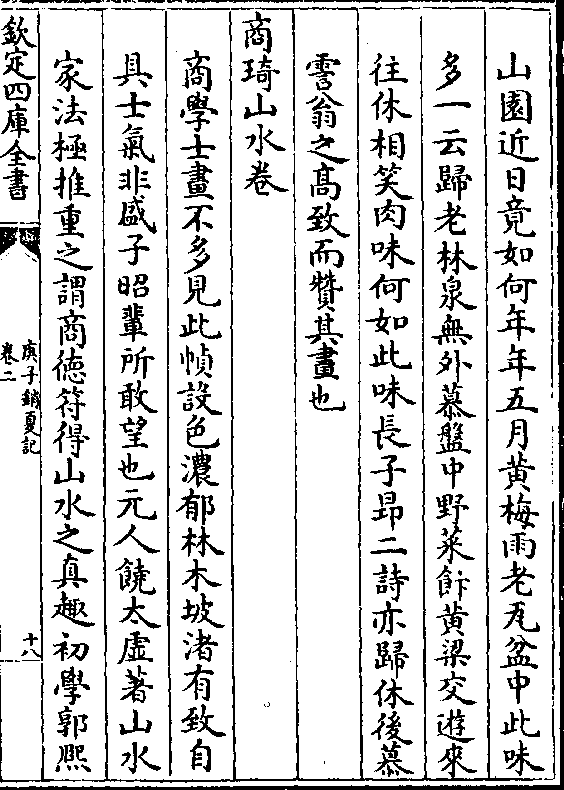 山園近日竟如何年年五月黄梅雨老瓦盆中此味
多一云歸老林泉無外慕盤中野菜飰黄粱交遊來
往休相笑肉味何如此味長子昻二詩亦歸休後慕
霅翁之髙致而贊其畫也
商琦山水卷
商學士畫不多見此幀設色濃郁林木坡渚有致自
具士氣非盛子昭輩所敢望也元人饒太虛著山水
家法極推重之謂商德符得山水之真趣初學郭熈
欽定四庫全書
庚子銷夏記
卷二
十八